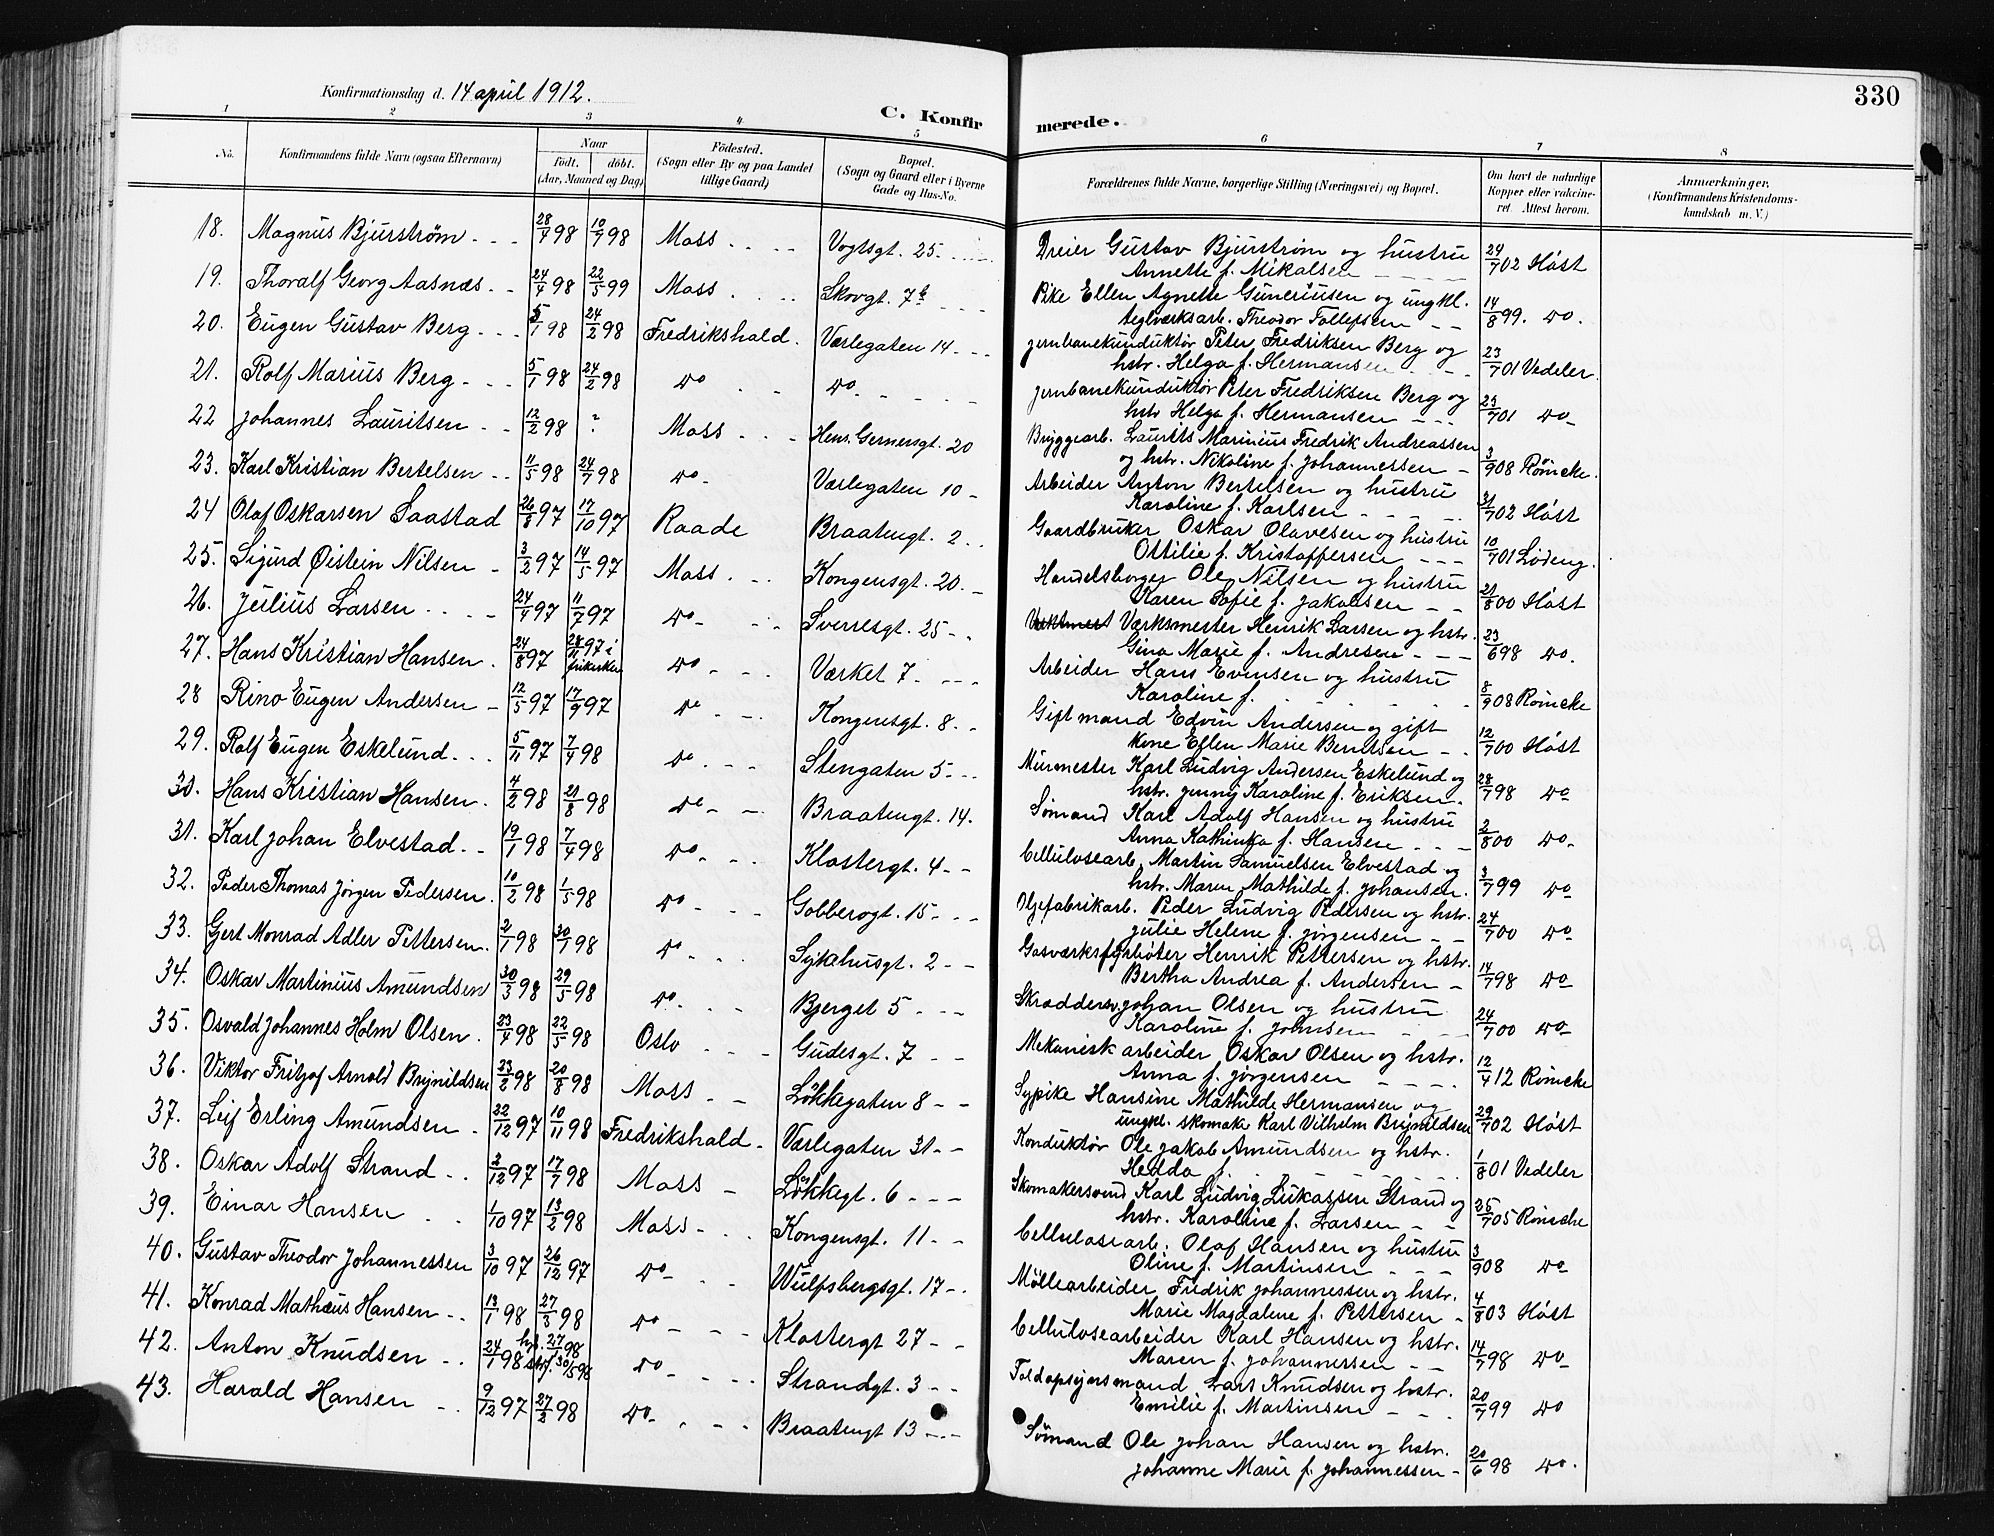 Konfirmationsdag d. 14 april 1912.
C. Konfirmerede.
330
1 2 3 4 5 6 7 8
No.
Konfirmandens fulde Navn (ogsaa Efternavn)
Naar
födt. döbt.
(Aar, Maaned og Dag)
Födested.
(Sogn eller By og paa Landet
tillige Gaard)
Bopæl.
(Sogn og Gaard eller i Byerne
Gade og Hus-No.
Forældrenes fulde Navne, borgerlige Stilling (Næringsvei) og Bopæl.
Om havt de naturlige
Kopper eller vakcine-
ret. Attest herom.
Anmærkninger.
(Konfirmandens Kristendoms-
kundskab m. V.)
18. Magnus Bjurström 28/7 98 10/9 98 Moss Vogtsgt. 25. Dreier Gustav Bjurström og hustru 24/7 02 Höst
Annette f. Mikalsen
19. Thoralf Georg Aasnæs 24/4 98 22/5 99 Moss Skovgt. 7b Pike Ellen Agnette Guneriusen og ungkl. 14/8 99. do.
teglværksarb. Theodor Tollefsen
20. Eugen Gustav Berg 5/1 98 24/2 98 Fredrikshald. Værlegaten 14 jernbanekunduktör Peter Fredriksen Berg og 23/7 01 Vedeler.
hstr. Helga f. Hermansen
21. Rolf Marius Berg 5/1 98 24/2 98 do do. jernbanekunduktör Peter Fredriksen Berg og 23/7 01 do
hstr Helga f. Hermansen
22 Johannes Lauritsen 12/2 98 ? Moss Henr. Gernersgt. 20 Bryggearb. Laurits Marinius Fredrik Andreassen 3/9 08 Römcke.
og hstr. Nikoline f. Johannessen
23. Karl Kristian Bertelsen 11/5 98 24/7 98 do Værlegaten 10 Arbeider Anton Bertelsen og hustru 31/7 02 Höst
Karoline f. Karlsen
24 Olaf Oskarsen Saastad 26/8 97 17/10 97 Raade Braatengt. 2. Gaardbruker Oskar Olavesen og hustru 10/7 01 Lödeng.
Ottilie f. Kristoffersen
25. Sigurd Øistein Nilsen 3/2 97 14/5 97 Moss. Kongensgt. 20. Handelsborger Ole Nilsen og hustru 21/8 00 Höst
Karen Sofie f. Jakobsen
26. Julius Larsen 24/4 97 11/7 97 do Sverresgt. 25 Værksmester Henrik Larsen og hstr. 23/6 98 do.
Gina Marie f. Andresen
27. Hans Kristian Hansen. 24/8 97 28/11 97 i do Værket 7. Arbeider Hans Evensen og hustru 8/9 08 Römcke
frikirken Karoline f.
28 Rino Eugen Andersen 12/5 97 17/9 97 do Kongensgt. 8 Gift mand Edvin Andersen og gift 12/7 00 Höst
kone Ellen Marie Berntsen
29. Rolf Eugen Eskelund. 5/11 97 7/4 98 do Stengaten 5 Murmester Karl Ludvig Andersen Eskelund og 28/7 98 do
hstr. Jenny Karoline f. Eriksen.
30. Hans Kristian Hansen. 4/2 98 21/8 98 do Braatengt. 14. Sömand Karl Adolf Hansen og hustru 2/8 00 do
Anna Kathinka f. Hansen
31. Karl Johan Elvestad. 19/1 98 7/4 98 do Klostergt. 4 Cellulosearb. Martin Samuelsen Elvestad og 3/7 99 do
hstr. Maren Mathilde f. Johansen.
32. Peder Thomas Jörgen Pedersen. 10/2 98 1/5 98 do Gobberogt. 15 Oljefabrikarb. Peder Ludvig Pedersen og hstr. 24/7 00 do
Julie Helene f. Jörgensen
33. Gert Monrad Adler Pettersen. 2/1 98 30/1 98 do Sykehusgt. 2 Gasværksfyrböter Henrik Pettersen og hstr. 14/7 98 do
Bertha Andrea f. Andersen
34. Oskar Martinius Amundsen 30/3 98 29/5 98 do. Bjerget 5 Skræddersv. Johan Olsen og hustru 24/7 00 do
Karoline f. Johnsen
35. Osvald Johannes Holm Olsen. 23/4 98 22/5 98 Oslo Gudesgt. 7 Mekanisk arbeider Oskar Olsen og hstr. 12/4 12 Römcke
Anna f. Jörgensen
36. Viktor Fritjof Arnold Brynildsen 23/2 98 20/8 98 Moss Lökkegaten 8 Sypike Hansine Mathilde Hermansen og 29/7 02 Höst
ungkl. skomak. Karl Vilhelm Brynildsen
37. Leif Erling Amundsen. 22/12 97 10/11 98 Fredrikshald. Værlegaten 31 Konduktör Ole Jakob Amundsen og hstr. 1/8 01 Vedeler
Hedda f.
38. Oskar Adolf Strand 2/12 97 17/7 98 Moss Lökkegt. 6 Skomakersvend Karl Ludvig Lukassen Strand og 25/7 05 Römcke
hstr. Karoline f. Larsen
39. Einar Hansen 1/10 97 13/2 98 Moss Kongensgt. 11 Cellulosearb. Olaf Hansen og hustru 3/9 08 do
Oline f. Martinsen
40. Gustav Theodor Johannessen 3/10 97 26/12 97 do Wulfsbergsgt. 17 Möllearbeider Fredrik Johannessen og hstr. 4/8 03 Höst
Marie Magdalene f. Pettersen
41. Konrad Mathæus Hansen 13/1 98 27/3 98 do Klostergt 27 Cellulosearbeider Karl Hansen og hstr. 14/7 98 do
Maren f. Johannessen
42. Anton Knudsen 24/1 98 hj. 27/1 98 do Strandgt. 3 Toldopsynsmand Lars Knudsen og hstr. 20/7 99 do
stf. 30/5 98 Emilie f. Martinsen
43. Harald Hansen 9/12 97 27/2 98 do Braatengt 13 Sömand Ole Johan Hansen og hstr. 20/6 98 do.
Johanne Marie f. Johannessen